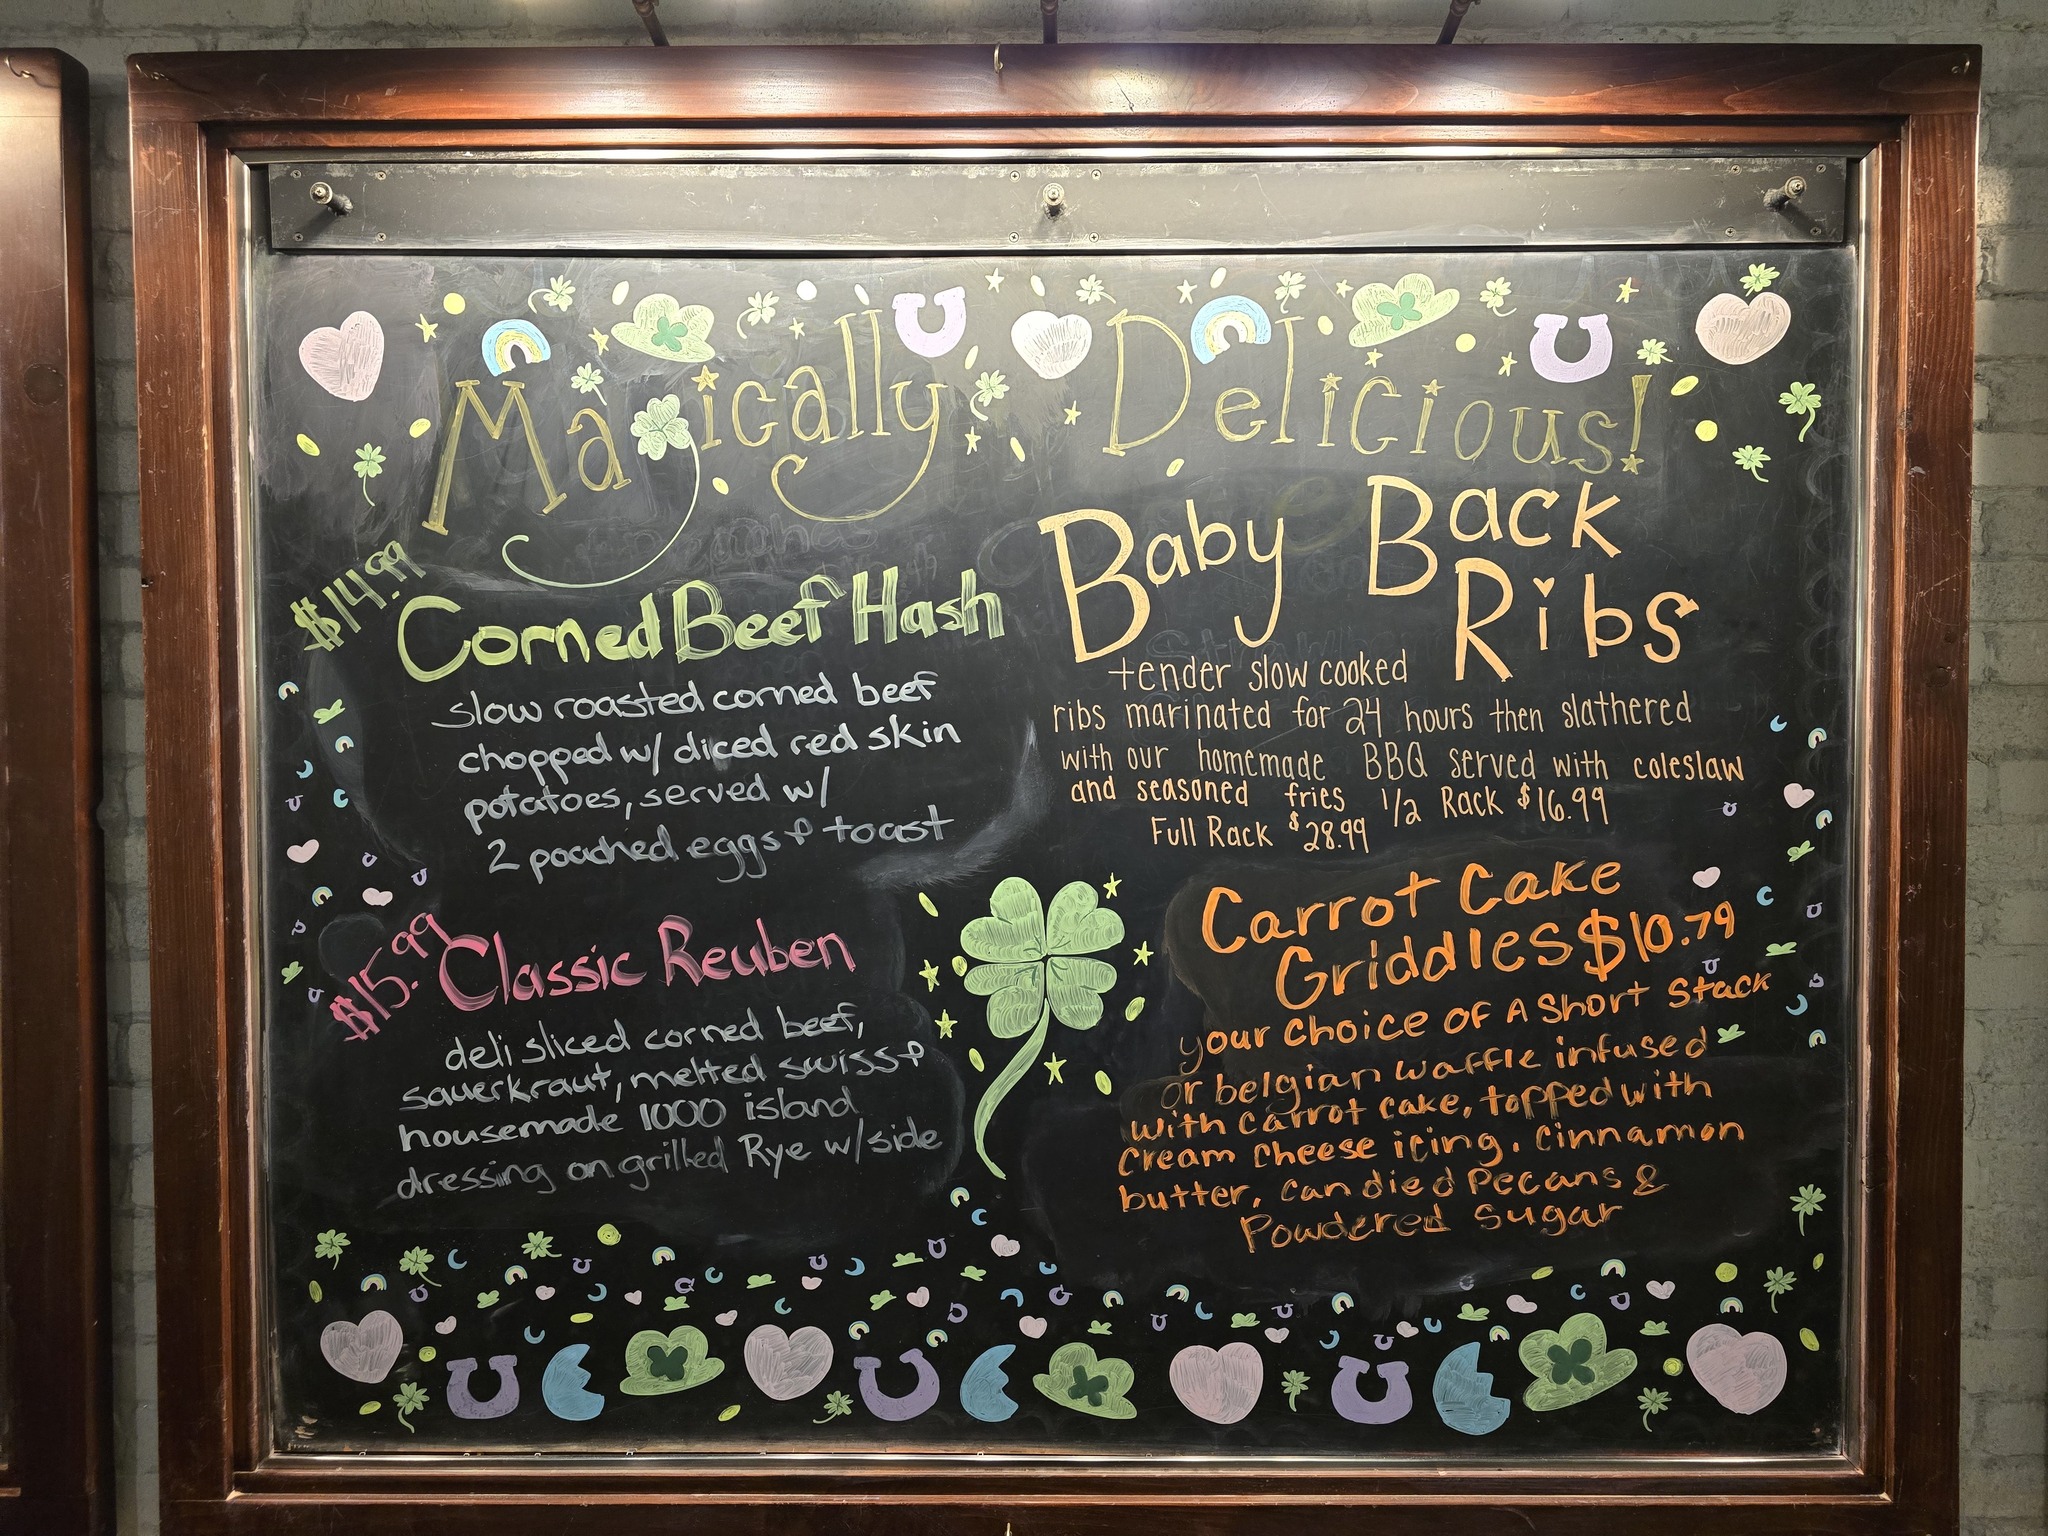 Magically Delicious!
$14.99
Corned Beef Hash
slow roasted corned beef
chopped w/ diced red skin
potatoes, served w/
2 poached eggs & toast
$15.99
Classic Reuben
deli sliced corned beef,
sauerkraut, melted swiss &
housemade 1000 island
dressing on grilled Rye w/ side
Baby Back
Ribs
tender slow cooked
ribs marinated for 24 hours then slathered
with our homemade BBQ served with coleslaw
and seasoned fries 1/2 Rack $16.99
Full Rack $28.99
Carrot Cake
Griddles $10.79
your choice of A Short Stack
or belgian waffle infused
with carrot cake, topped with
cream cheese icing, cinnamon
butter, candied pecans &
Powdered sugar